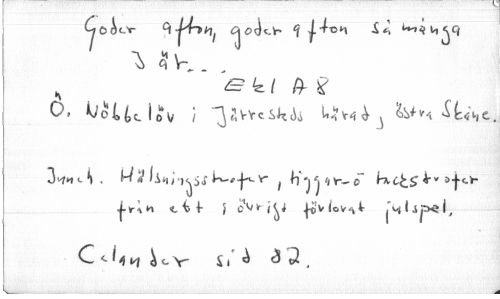 Goder afton, goder afton så många
I är...
Ekl A 8
Ö. Nöbbelöv i Järrestads härad, östra Skåne.
Inneh. Hälsningsstrofer, tiggar- o tackstrofer
från ett i övrigt förlorat julspel.
Celander sid 82.